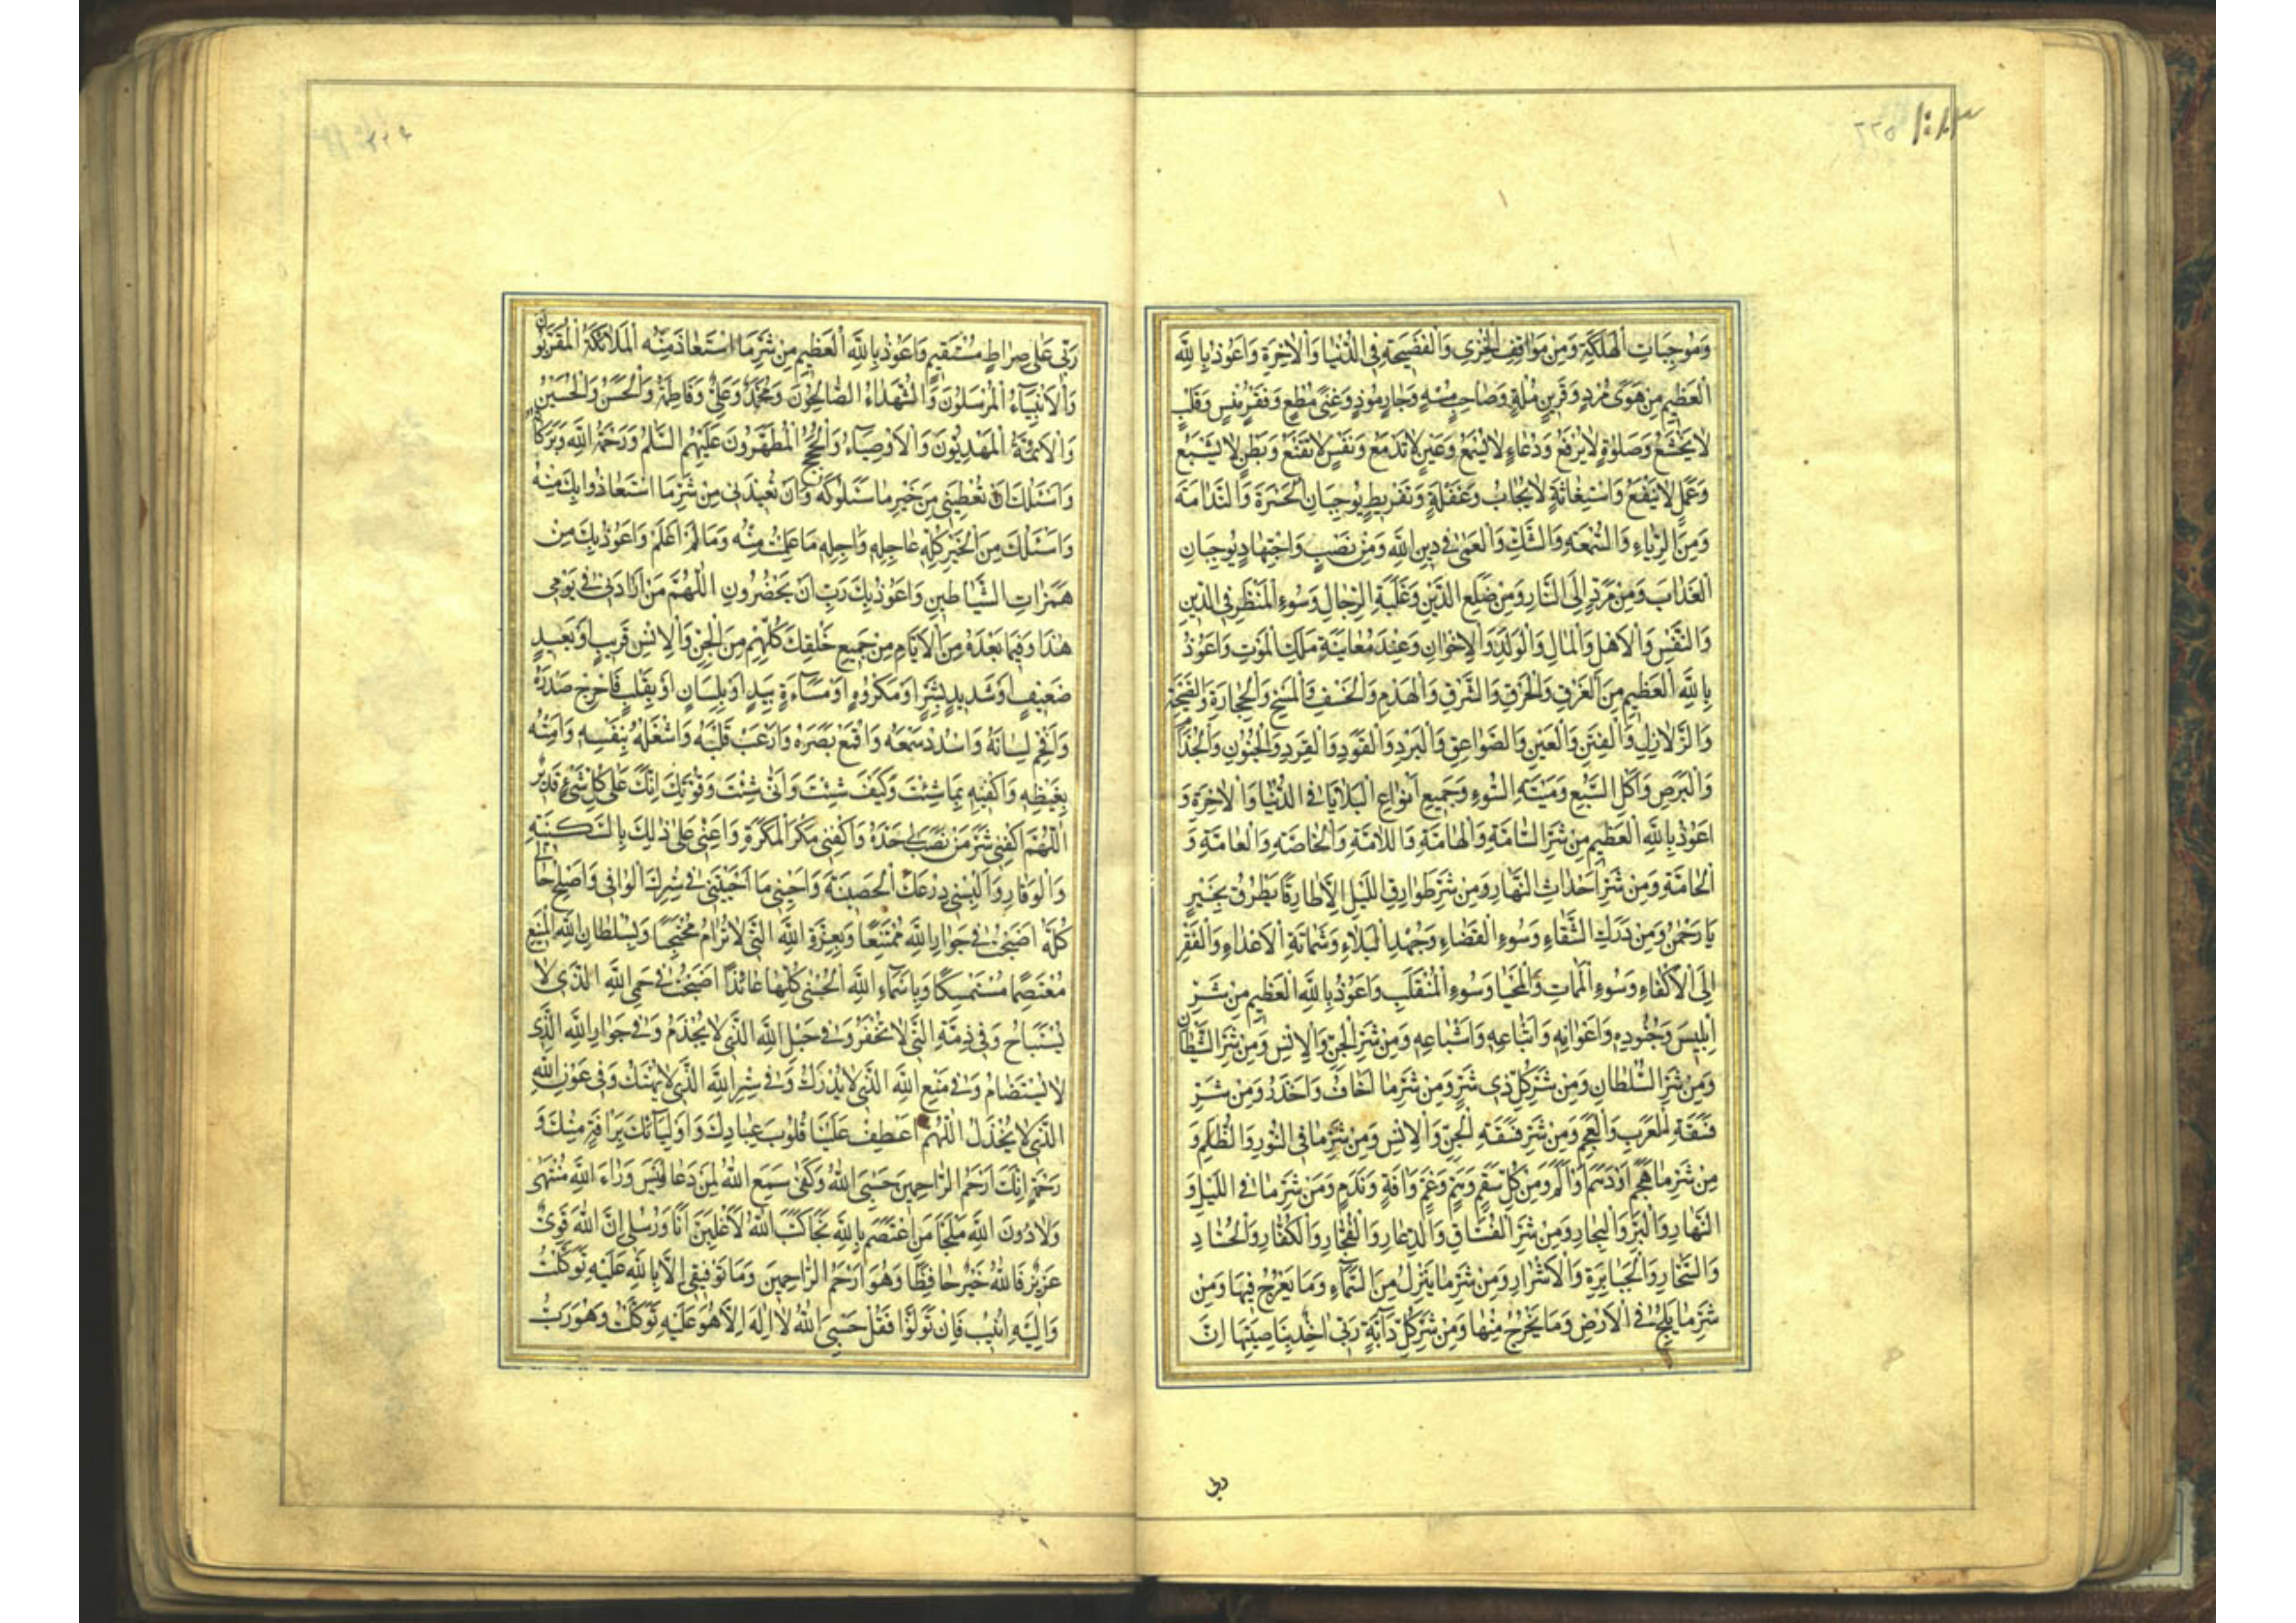 وَمُوجِبَاتِ الْهَلَكَةِ وَمِنْ مَوَاقِفِ الْخِزْيِ وَالْفَضِيحَةِ فِي الدُّنْيَا وَالْاٰخِرَةِ وَاَعُوذُ بِاللّٰهِ
الْعَظِيمِ مِنْ هَوًى مُرْدٍ وَقَرِينٍ مُلْهٍ وَصَاحِبٍ مُسْهٍ وَجَارٍ مُوذٍ وَغِنًى مُطْغٍ وَفَقْرٍ مُنْسٍ وَقَلْبٍ
لَا يَخْشَعُ وَصَلٰوةٍ لَا يُرْفَعُ وَدُعَاءٍ لَا يُسْمَعُ وَعَيْنٍ لَا تَدْمَعُ وَنَفْسٍ لَا تَقْنَعُ وَبَطْنٍ لَا يَشْبَعُ
وَعَمَلٍ لَا يَنْفَعُ وَاسْتِغَاثَةٍ لَا يُجَابُ وَغَفْلَةٍ وَتَفْرِيطٍ يُوجِبَانِ الْحَسْرَةَ وَالنَّدَامَةَ
وَمِنَ الرِّيَاءِ وَالسُّمْعَةِ وَالشَّكِّ وَالْعَمٰى فِي دِينِ اللّٰهِ وَمِنْ نَصَبٍ وَاجْتِهَادٍ يُوجِبَانِ
الْعَذَابَ وَمِنْ مَرَدٍّ اِلَى النَّارِ وَمِنْ ضَلَعِ الدَّيْنِ وَغَلَبَةِ الرِّجَالِ وَسُوءِ الْمَنْظَرِ فِي الدِّينِ
وَالنَّفْسِ وَالْاَهْلِ وَالْمَالِ وَالْوَلَدِ وَالْاِخْوَانِ وَعِنْدَ مُعَايَنَةِ مَلَكِ الْمَوْتِ وَاَعُوذُ
بِاللّٰهِ الْعَظِيمِ مِنَ الْغَرَقِ وَالْحَرَقِ وَالشَّرَقِ وَالْهَدْمِ وَالْخَسْفِ وَالْمَسْخِ وَالْحِجَارَةِ وَالصَّيْحَةِ
وَالزَّلَازِلِ وَالْفِتَنِ وَالْعَيْنِ وَالصَّوَاعِقِ وَالْبَرَدِ وَالْقَوَدِ وَالْقَرَدِ وَالْجُنُونِ وَالْجُذَامِ
وَالْبَرَصِ وَاَكْلِ السَّبُعِ وَمِيتَةِ السُّوءِ وَجَمِيعِ اَنْوَاعِ الْبَلَايَا فِي الدُّنْيَا وَالْاٰخِرَةِ وَ
اَعُوذُ بِاللّٰهِ الْعَظِيمِ مِنْ شَرِّ السَّامَّةِ وَالْهَامَّةِ وَاللَّامَّةِ وَالْخَاصَّةِ وَالْعَامَّةِ وَ
الْحَامَّةِ وَمِنْ شَرِّ اَحْدَاثِ النَّهَارِ وَمِنْ شَرِّ طَوَارِقِ اللَّيْلِ اِلَّا طَارِقًا يَطْرُقُ بِخَيْرٍ
يَا رَحْمٰنُ وَمِنْ دَرَكِ الشَّقَاءِ وَسُوءِ الْقَضَاءِ وَجَهْدِ الْبَلَاءِ وَشَمَاتَةِ الْاَعْدَاءِ وَالْفَقْرِ
اِلَى الْاَكْفَاءِ وَسُوءِ الْمَمَاتِ وَالْمَحْيَا وَسُوءِ الْمُنْقَلَبِ وَاَعُوذُ بِاللّٰهِ الْعَظِيمِ مِنْ شَرِّ
اِبْلِيسَ وَجُنُودِهِ وَاَعْوَانِهِ وَاَتْبَاعِهِ وَاَشْيَاعِهِ وَمِنْ شَرِّ الْجِنِّ وَالْاِنْسِ وَمِنْ شَرِّ الشَّيْطَانِ
وَمِنْ شَرِّ السُّلْطَانِ وَمِنْ شَرِّ كُلِّ ذِي شَرٍّ وَمِنْ شَرِّ مَا اَخَافُ وَاَحْذَرُ وَمِنْ شَرِّ
فَسَقَةِ الْعَرَبِ وَالْعَجَمِ وَمِنْ شَرِّ فَسَقَةِ الْجِنِّ وَالْاِنْسِ وَمِنْ شَرِّ مَا فِي النُّورِ وَالظُّلَمِ وَ
مِنْ شَرِّ مَا هَجَمَ اَوْ دَهَمَ اَوْ اَلَمَّ وَمِنْ كُلِّ سَقَمٍ وَهَمٍّ وَغَمٍّ وَاٰفَةٍ وَنَدَمٍ وَمِنْ شَرِّ مَا فِي اللَّيْلِ وَ
النَّهَارِ وَالْبَرِّ وَالْبِحَارِ وَمِنْ شَرِّ الْفُسَّاقِ وَالدُّعَّارِ وَالْفُجَّارِ وَالْكُفَّارِ وَالْحُسَّادِ
وَالسُّحَّارِ وَالْجَبَابِرَةِ وَالْاَشْرَارِ وَمِنْ شَرِّ مَا يَنْزِلُ مِنَ السَّمَاءِ وَمَا يَعْرُجُ فِيهَا وَمِنْ
شَرِّ مَا يَلِجُ فِي الْاَرْضِ وَمَا يَخْرُجُ مِنْهَا وَمِنْ شَرِّ كُلِّ دَابَّةٍ رَبِّي اٰخِذٌ بِنَاصِيَتِهَا اِنَّ
ربی
رَبِّي عَلٰى صِرَاطٍ مُسْتَقِيمٍ وَاَعُوذُ بِاللّٰهِ الْعَظِيمِ مِنْ شَرِّ مَا اسْتَعَاذَ مِنْهُ الْمَلَائِكَةُ الْمُقَرَّبُونَ
وَالْاَنْبِيَاءُ الْمُرْسَلُونَ وَالشُّهَدَاءُ الصَّالِحُونَ وَمُحَمَّدٌ وَعَلِيٌّ وَفَاطِمَةُ وَالْحَسَنُ وَالْحُسَيْنُ
وَالْاَئِمَّةُ الْمَهْدِيُّونَ وَالْاَوْصِيَاءُ وَالْحُجَجُ الْمُطَهَّرُونَ عَلَيْهِمُ السَّلٰمُ وَرَحْمَةُ اللّٰهِ وَبَرَكَاتُهُ
وَاَسْئَلُكَ اَنْ تُعْطِيَنِي مِنْ خَيْرِ مَا سَئَلُوكَهُ وَاَنْ تُعِيذَنِي مِنْ شَرِّ مَا اسْتَعَاذُوا بِكَ مِنْهُ
وَاَسْئَلُكَ مِنَ الْخَيْرِ كُلِّهِ عَاجِلِهِ وَاٰجِلِهِ مَا عَلِمْتُ مِنْهُ وَمَا لَمْ اَعْلَمْ وَاَعُوذُ بِكَ مِنْ
هَمَزَاتِ الشَّيَاطِينِ وَاَعُوذُ بِكَ رَبِّ اَنْ يَحْضُرُونِ اَللّٰهُمَّ مَنْ اَرَادَنِي فِي يَوْمِي
هٰذَا وَفِيمَا بَعْدَهُ مِنَ الْاَيَّامِ مِنْ جَمِيعِ خَلْقِكَ كُلِّهِمْ مِنَ الْجِنِّ وَالْاِنْسِ قَرِيبٍ اَوْ بَعِيدٍ
ضَعِيفٍ اَوْ شَدِيدٍ بِشَرٍّ اَوْ مَكْرُوهٍ اَوْ مَسَاءَةٍ بِيَدٍ اَوْ بِلِسَانٍ اَوْ بِقَلْبٍ فَاَحْرِجْ صَدْرَهُ
وَاَلْجِمْ لِسَانَهُ وَاسْدُدْ سَمْعَهُ وَاقْمَعْ بَصَرَهُ وَارْعَبْ قَلْبَهُ وَاشْغَلْهُ بِنَفْسِهِ وَاَمِتْهُ
بِغَيْظِهِ وَاكْفِنِيهِ بِمَا شِئْتَ وَكَيْفَ شِئْتَ وَاَنّٰى شِئْتَ وَقُوَّتِكَ اِنَّكَ عَلٰى كُلِّ شَيْءٍ قَدِيرٌ
اَللّٰهُمَّ اكْفِنِي شَرَّ مَنْ نَصَبَ لِي حَدَّهُ وَاكْفِنِي مَكْرَ الْمَكَرَةِ وَاَعِنِّي عَلٰى ذٰلِكَ بِالسَّكِينَةِ
وَالْوَقَارِ وَاَلْبِسْنِي دِرْعَكَ الْحَصِينَةَ وَاَحْيِنِي مَا اَحْيَيْتَنِي فِي سِتْرِكَ الْوَاقِي وَاَصْلِحْ حَالِي
كُلَّهُ اَصْبَحْتُ فِي جِوَارِ اللّٰهِ مُمْتَنِعًا وَبِعِزَّةِ اللّٰهِ الَّتِي لَا تُرَامُ مُحْتَجِبًا وَبِسُلْطَانِ اللّٰهِ الْمَنِيعِ
مُعْتَصِمًا مُسْتَمْسِكًا وَبِاَسْمَاءِ اللّٰهِ الْحُسْنٰى كُلِّهَا عَائِذًا اَصْبَحْتُ فِي حِمَى اللّٰهِ الَّذِي لَا
يُسْتَبَاحُ وَفِي ذِمَّةِ الَّتِي لَا تُخْفَرُ وَفِي حَبْلِ اللّٰهِ الَّذِي لَا يُجْذَمُ وَفِي جِوَارِ اللّٰهِ الَّذِي
لَا يُسْتَضَامُ وَفِي مَنِيعِ اللّٰهِ الَّذِي لَا يُدْرَكُ وَفِي سِتْرِ اللّٰهِ الَّذِي لَا يُهْتَكُ وَفِي عَوْنِ اللّٰهِ
الَّذِي لَا يُخْذَلُ اَللّٰهُمَّ اعْطِفْ عَلَيْنَا قُلُوبَ عِبَادِكَ وَاَوْلِيَائِكَ بِرَأْفَةٍ مِنْكَ وَ
رَحْمَةٍ اِنَّكَ اَرْحَمُ الرَّاحِمِينَ حَسْبِيَ اللّٰهُ وَكَفٰى سَمِعَ اللّٰهُ لِمَنْ دَعَا لَيْسَ وَرَاءَ اللّٰهِ مُنْتَهٰى
وَلَا دُونَ اللّٰهِ مَلْجَأٌ مَنِ اعْتَصَمَ بِاللّٰهِ نَجَا كَتَبَ اللّٰهُ لَاَغْلِبَنَّ اَنَا وَرُسُلِي اِنَّ اللّٰهَ قَوِيٌّ
عَزِيزٌ فَاللّٰهُ خَيْرٌ حَافِظًا وَهُوَ اَرْحَمُ الرَّاحِمِينَ وَمَا تَوْفِيقِي اِلَّا بِاللّٰهِ عَلَيْهِ تَوَكَّلْتُ
وَاِلَيْهِ اُنِيبُ فَاِنْ تَوَلَّوْا فَقُلْ حَسْبِيَ اللّٰهُ لَا اِلٰهَ اِلَّا هُوَ عَلَيْهِ تَوَكَّلْتُ وَهُوَ رَبُّ